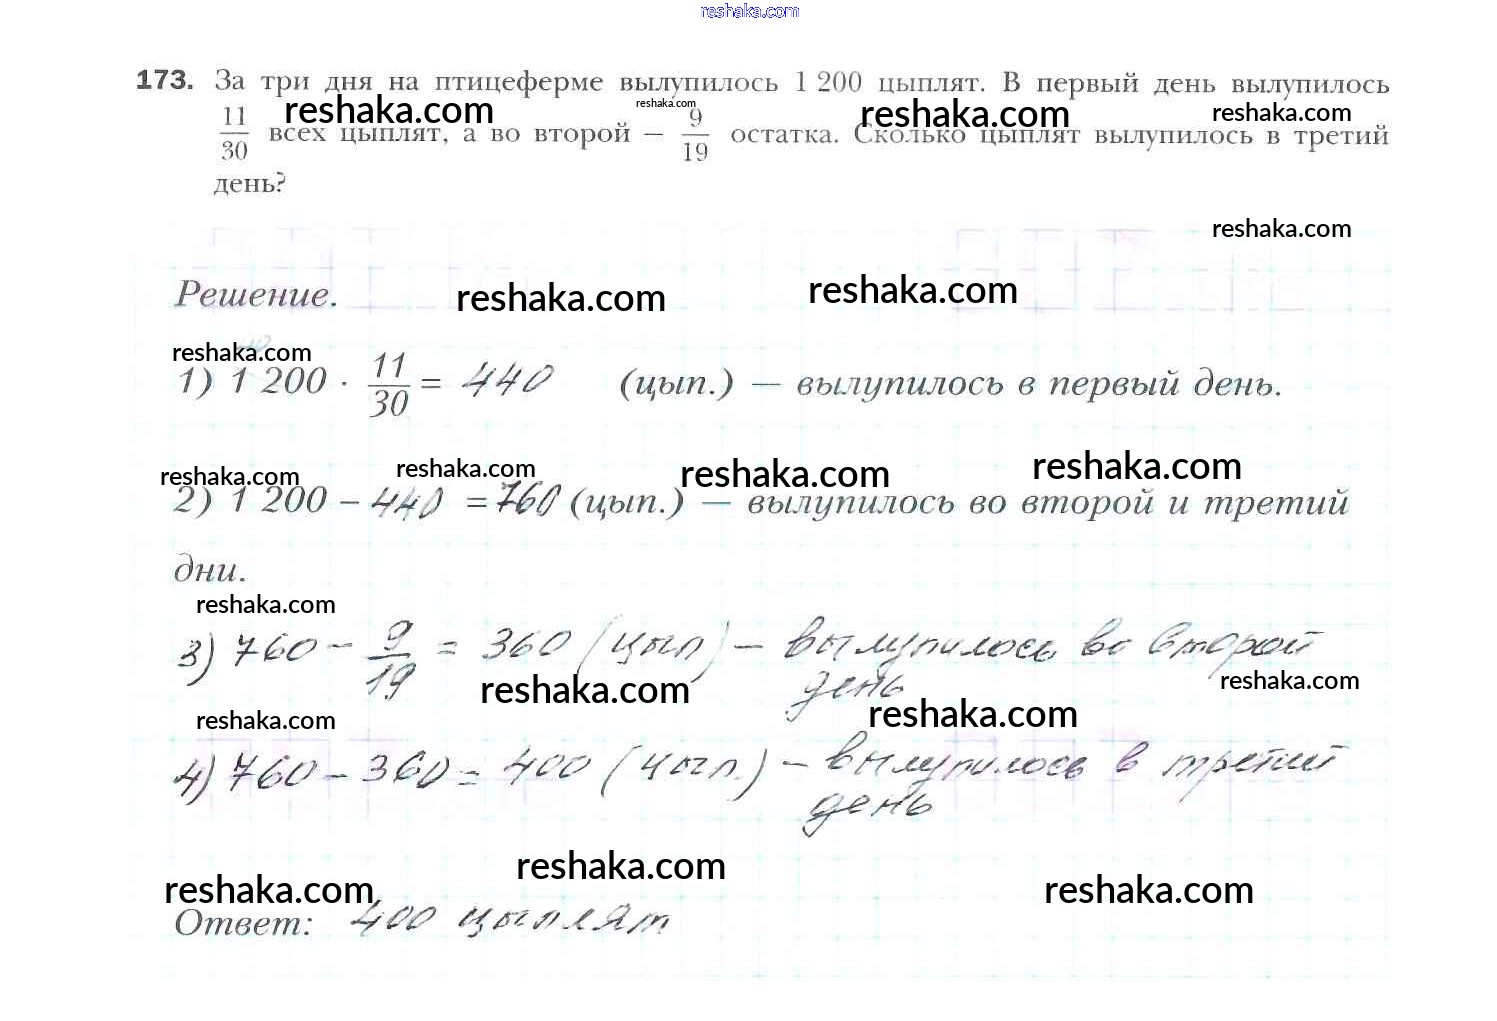 reshaka.com
173. За три дня на птицеферме вылупилось 1 200 цыплят. В первый день вылупилось
reshaka.com reshaka.com reshaka.com reshaka.com
11/30 всех цыплят, а во второй – 9/19 остатка. Сколько цыплят вылупилось в третий
день?
reshaka.com
Решение.
reshaka.com reshaka.com
reshaka.com
1) 1 200 · 11/30 = 440 (цып.) — вылупилось в первый день.
reshaka.com reshaka.com reshaka.com reshaka.com
2) 1 200 – 440 = 760 (цып.) — вылупилось во второй и третий
дни.
reshaka.com
3) 760 – 9/19 = 360 (цып) – вылупилось во второй
день
reshaka.com reshaka.com
reshaka.com reshaka.com
4) 760 – 360 = 400 (цып.) – вылупилось в третий
день
reshaka.com
reshaka.com reshaka.com
Ответ: 400 цыплят